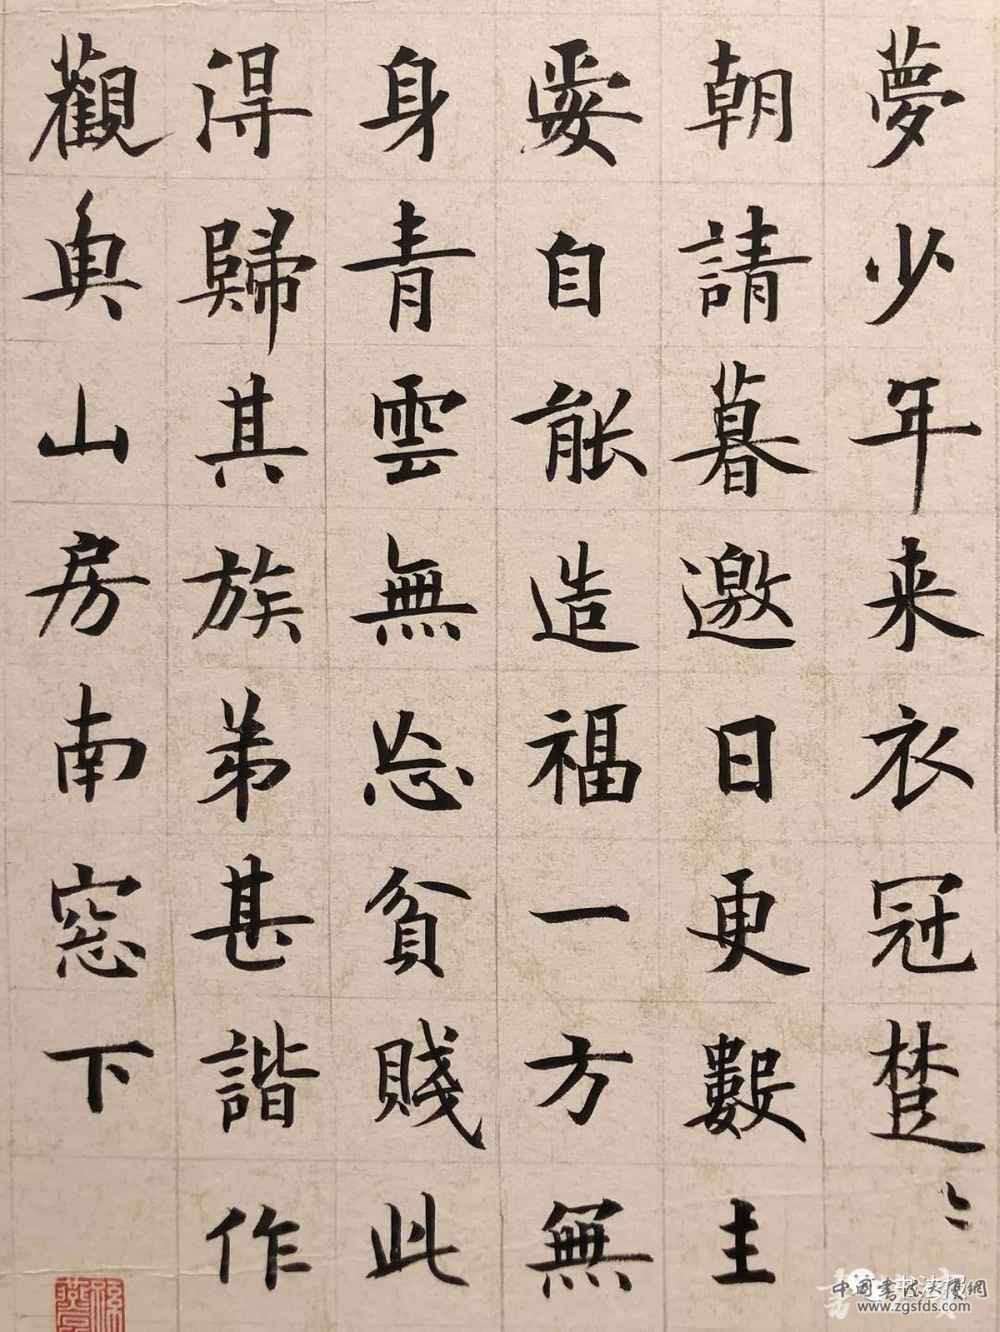 夢少年来衣冠楚〻
朝請暮邀日更數主
要自能造福一方無
身青雲無忘貧賤此
得歸其族弟甚諧作
觀魚山房南窓下
www.zgsfds.com